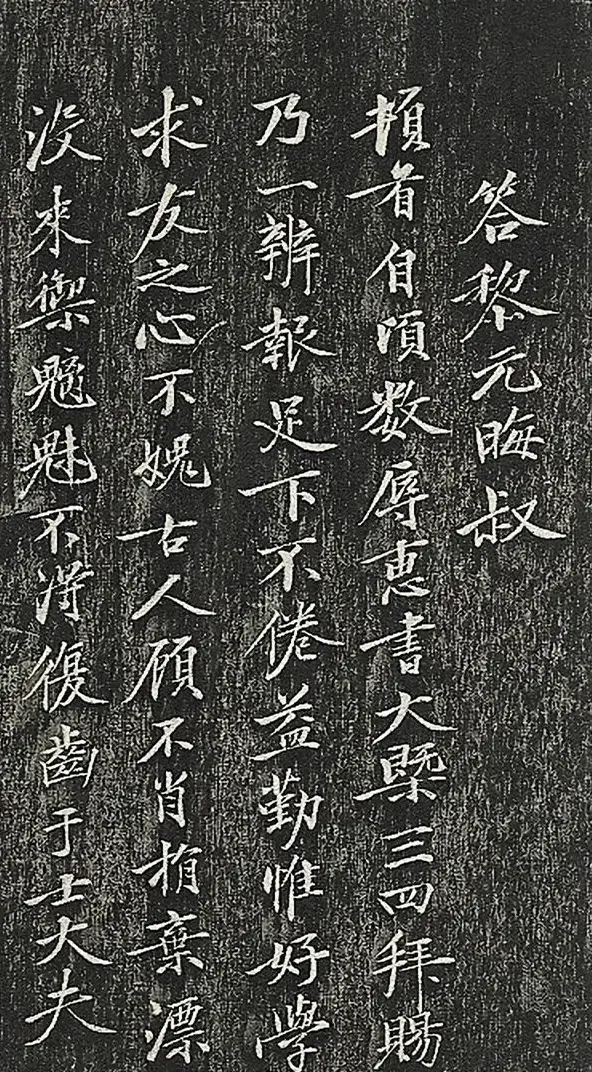 答黎元晦叔
頓首自頃数辱惠書大槩三四拜賜
乃一辨報足下不倦益勤惟好學
求友之心不媿古人顧不肖捐棄漂
沒來禦魑魅不得復齒于士大夫